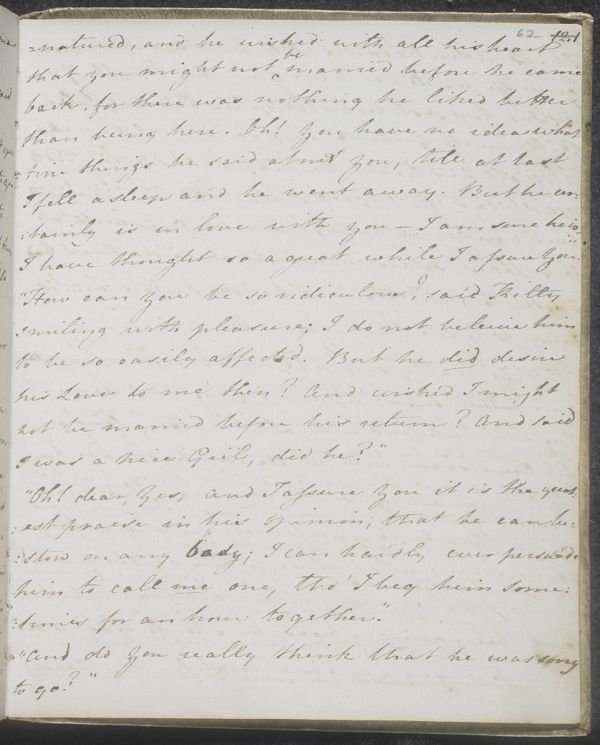 62 121
=natured, and he wished with all his heart
that you might not be married before he came
back, for there was nothing he liked better
than being here. Oh! you have no idea what
fine things he said about you, till at last
I fell asleep and he went away. But he cer:
:tainly is in love with you — I am sure he is,
I have thought so a great while I assure You."
"How can you be so ridiculous? said Kitty
smiling with pleasure; I do not beleive him
to be so easily affected. But he did desire
his Love to me then? And wished I might
not be married before his return? And said
I was a nice Girl, did he?"
"Oh! dear, Yes, and I assure You it is the great:
:est praise in his opinion, that he can be:
:stow on any body; I can hardly ever persuade
him to call me one, tho' I beg him some:
:times for an hour together."
"And do You really think that he was sorry
to go?"